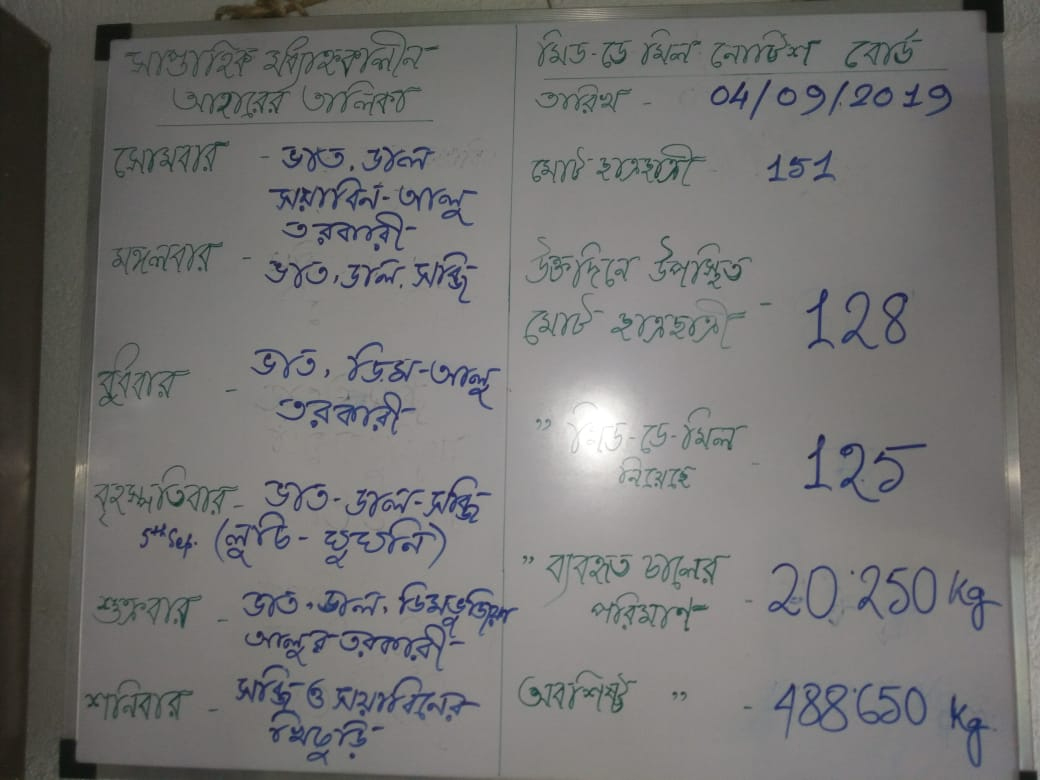 সাপ্তাহিক মধ্যাহ্নকালীন
আহারের তালিকা
সোমবার - ভাত, ডাল
সয়াবিন-আলু
তরকারী
মঙ্গলবার - ভাত, ডাল, সব্জি
বুধবার - ভাত, ডিম-আলু
তরকারী
বৃহস্পতিবার - ভাত-ডাল-সব্জি
5th Sep. (লুচি - ঘুঘনি)
শুক্রবার - ভাত, ডাল, ডিমভুজিয়া
আলুর তরকারী
শনিবার - সব্জি ও সয়াবিনের
খিচুড়ি
মিড-ডে মিল নোটিশ বোর্ড
তারিখ - 04/09/2019
মোট ছাত্রছাত্রী 151
উক্তদিনে উপস্থিত
মোট ছাত্রছাত্রী - 128
" মিড-ডে-মিল
নিয়েছে - 125
" ব্যবহৃত চালের
পরিমাণ - 20.250 Kg
অবশিষ্ট " - 488.650 Kg